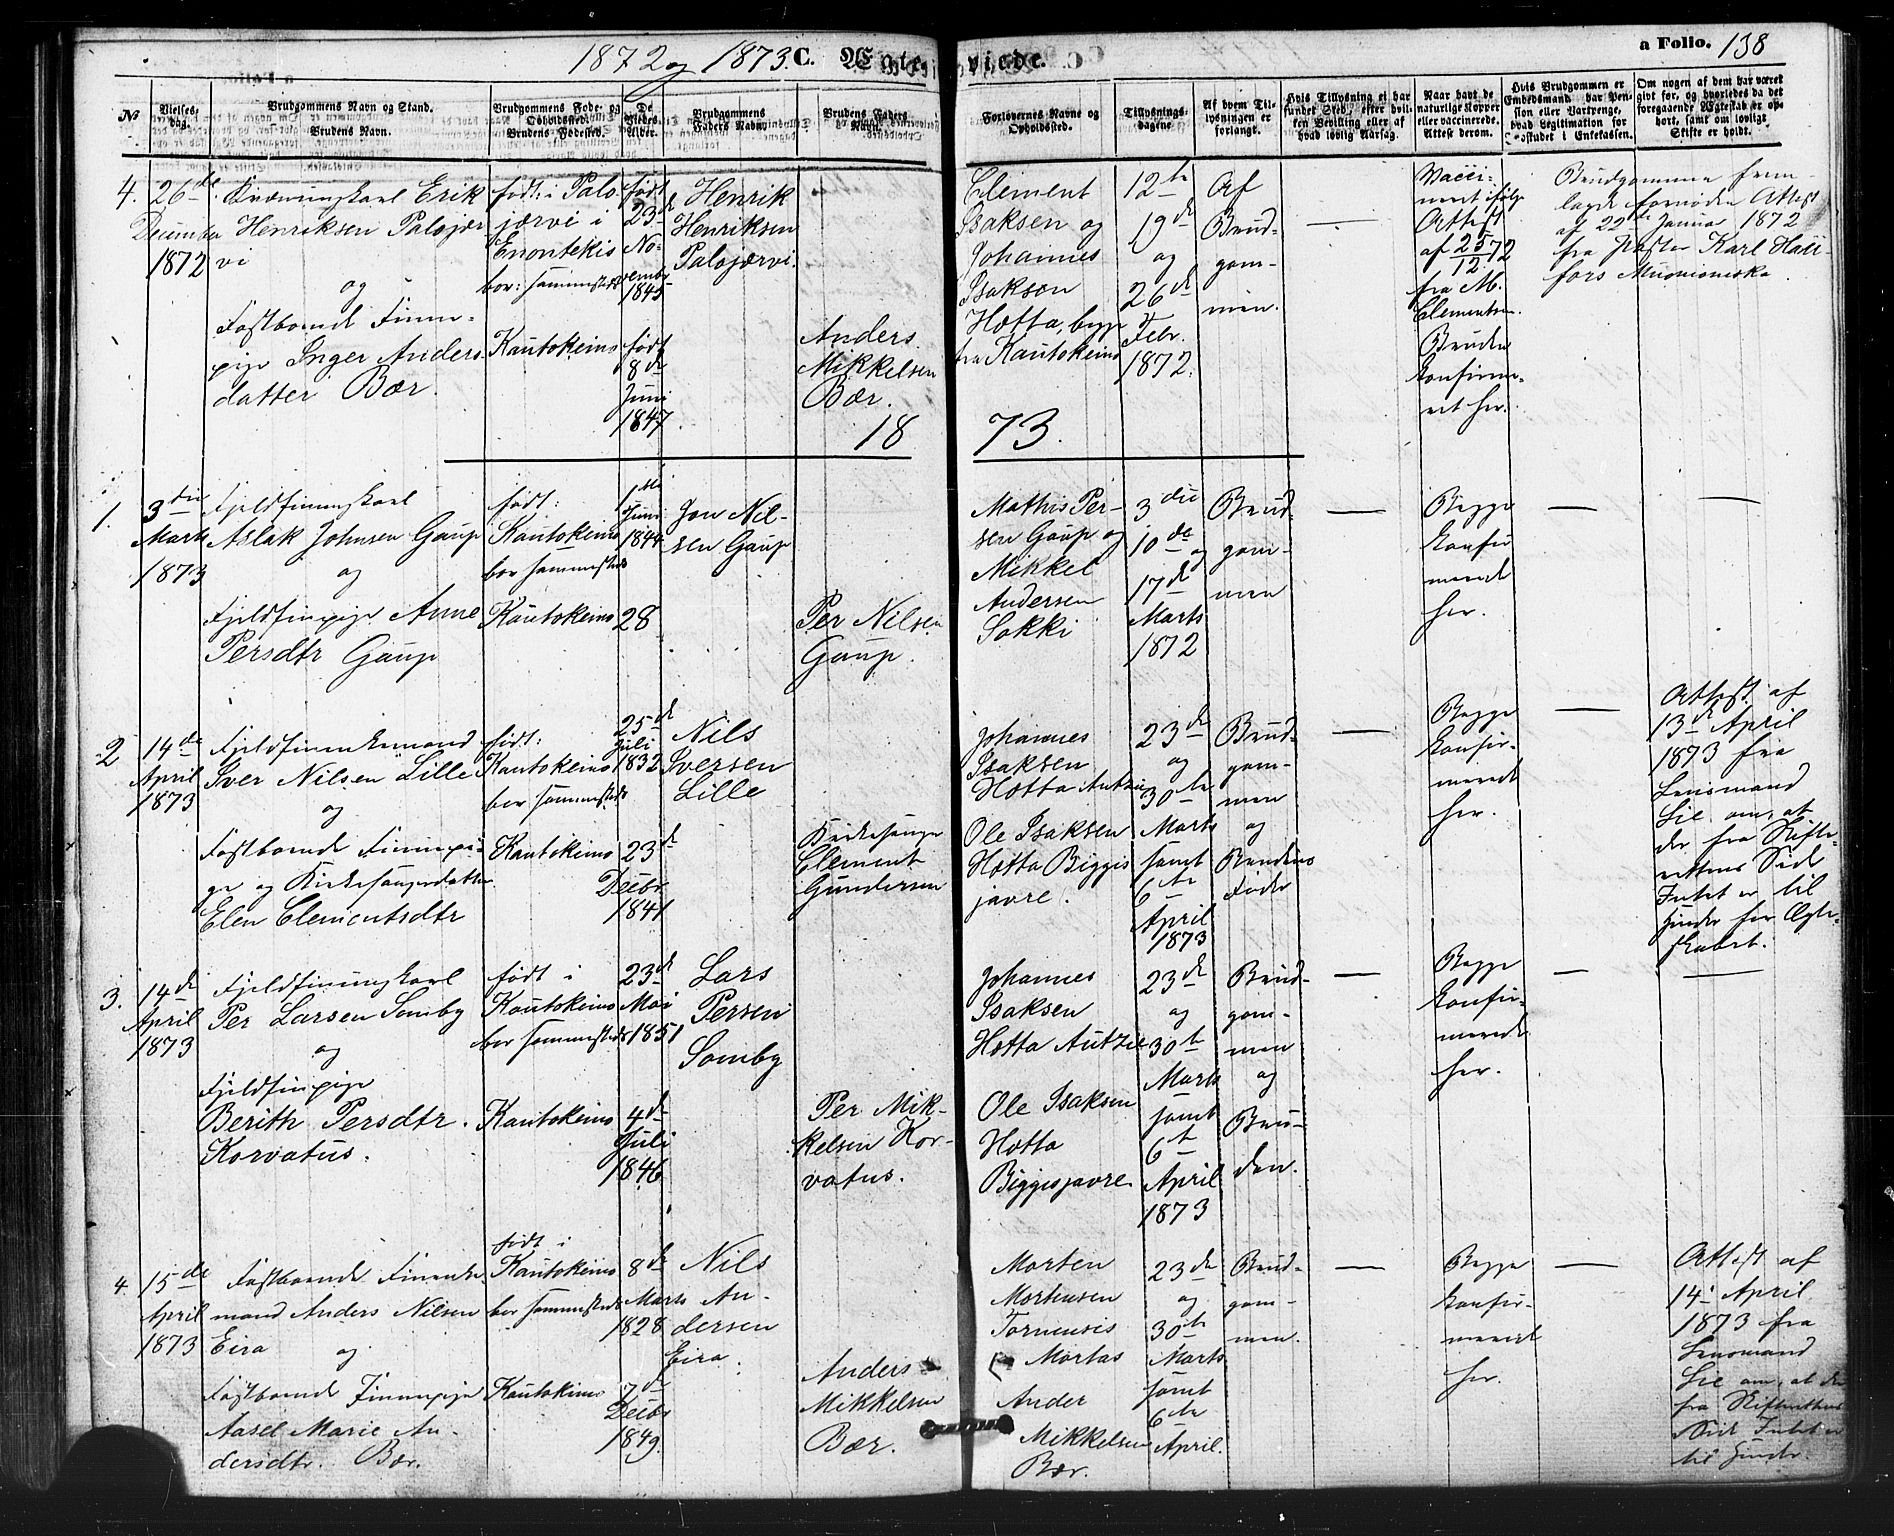 1872 og 1873. C. Ægte- viede. a Folio. 138
No
Vielses-
dag.
Brudgommens Navn og Stand.
Brudens Navn.
Brudgommens Føde- og
Opholdssted.
Brudens Fødested.
De
Viedes
Alder.
Brudgommens
Faders Navn.
Brudens Faders
Navn.
Forlovernes Navne og
Opholdssted.
Tillysnings-
dagene
Af hvem Til-
lysningen er
forlangt.
Hvis Tillysning ei har
fundet Sted, efter hvil-
ken Bevilling eller af
hvad lovlig Aarsag.
Naar havt de
naturlige Kopper
eller vaccinerede.
Attest derom.
Hvis Brudgommen er
Embedsmand har Pen-
sion eller Vartpenge,
hvad Legitimation for
Indskud i Enkekassen.
Om nogen af dem har været
gift før, og hvorledes da det
foregaaende Ægteskab er op-
hørt, samt om lovligt
Skifte er holdt.
4.
26de
Decembr
1872
Kvænungkarl Erik
Henriksen Palojær
vi
og
Fastboende Finne-
pige Inger Anders
datter Bær.
født: i Palo
jærvi i
Enontekis
bor: sammesteds
Kautokeino
født
23de
No-
vembr
1845
født
8de
Juni
1847
Henrik
Henriksen
Palojærvi.
Anders
Mikkelsen
Bær.
Clement
Isaksen og
Johannes
Isaksen
Hætta, begge
fra Kautokeino
12te
19de
og
26de
Febr.
1872.
Af
Brud-
gom-
men.
Vacci-
neret ifølge
Attest
af 25/12 72
fra M.
Clementsen.
Bruden
konfirme-
ret her.
Brudgommen frem-
lagde fornøden Attest
af 22de Januar 1872
fra Pastor Karl
fors Muonioniska.
18 73.
1.
3die
Marts
1873
Fjeldfinungkarl
Aslak Johnsen Gaup
og
Fjeldfinpige Anne
Persdtr Gaup
født:
Kautokeino
bor sammesteds
Kautokeino
1ste
Juni
1844
28
Jon Nil-
sen Gaup
Per Nilsen
Gaup.
Mathis Per-
sen Gaup og
Mikkel
Andersen
Sokki
3die
10de og
17de
Marts
1872
Brud-
gom-
men
Begge
konfir
merede
her.
2
14de
April
1873
Fjeldfinenkemand
Iver Nilsen Lille
og
Fastboende Finnepi-
ge og Kirkesangerdatter
Elen Clementsdtr
født:
Kautokeino
bor sammesteds
Kautokeino
25de
Juli
1832
23de
Decbr
1841
Nils
Iversen
Lille
Kirkesanger
Clement
Gundersen
Johannes
Isaksen
Hætta Autzie
Ole Isaksen
Hætta Biggis
javre.
23de
og
30te
Marts
samt
6te
April
1873
Brud-
gom-
men
og
Brudens
Fader
Begge
konfir-
merede
her.
Attest af
13de April
1873 fra
Lensmand
Lie om, at
der fra Skifte-
rettens Side
Intet er til
Hinder for Ægte-
skabet.
3.
14de
April
1873
Fjeldfinungkarl
Per Larsen Somby
og
Fjeldfinpige
Berith Persdtr.
Korvatus.
født i
Kautokeino
bor sammesteds
Kautokeino
23de
Mai
1851
4de
Juli
1846
Lars
Persen
Somby
Per Mik-
kelsen Kor-
vatus.
Johannes
Isaksen
Hætta Autzie
Ole Isaksen
Hætta
Biggisjavre
23de
og
30te
Marts
samt
6te
April
1873
Brud-
gom-
men
og
Bru-
den.
Begge
konfir-
merede
her.
4.
15de
April
1873
Fastboende Finenke
mand Anders Nilsen
Eira og
Fastboende Finnepige
Aasel Marie An-
dersdtr. Bær.
født i
Kautokeino
bor sammesteds
Kautokeino
8de
Marts
1828
7de
Decbr
1849.
Nils
An-
dersen
Eira.
Anders
Mikkelsen
Bær.
Morten
Mortensen
Tornensis
Mortas
Ander
Mikkelsen
Bær.
23de
og
30te
Marts
samt
6te
April.
Brud-
gom-
men.
Begge
konfir-
merede
her.
Attest af
14. April
1873 fra
Lensmand
Lie om, at der
fra Skifterettens
Side Intet er
til Hinder.